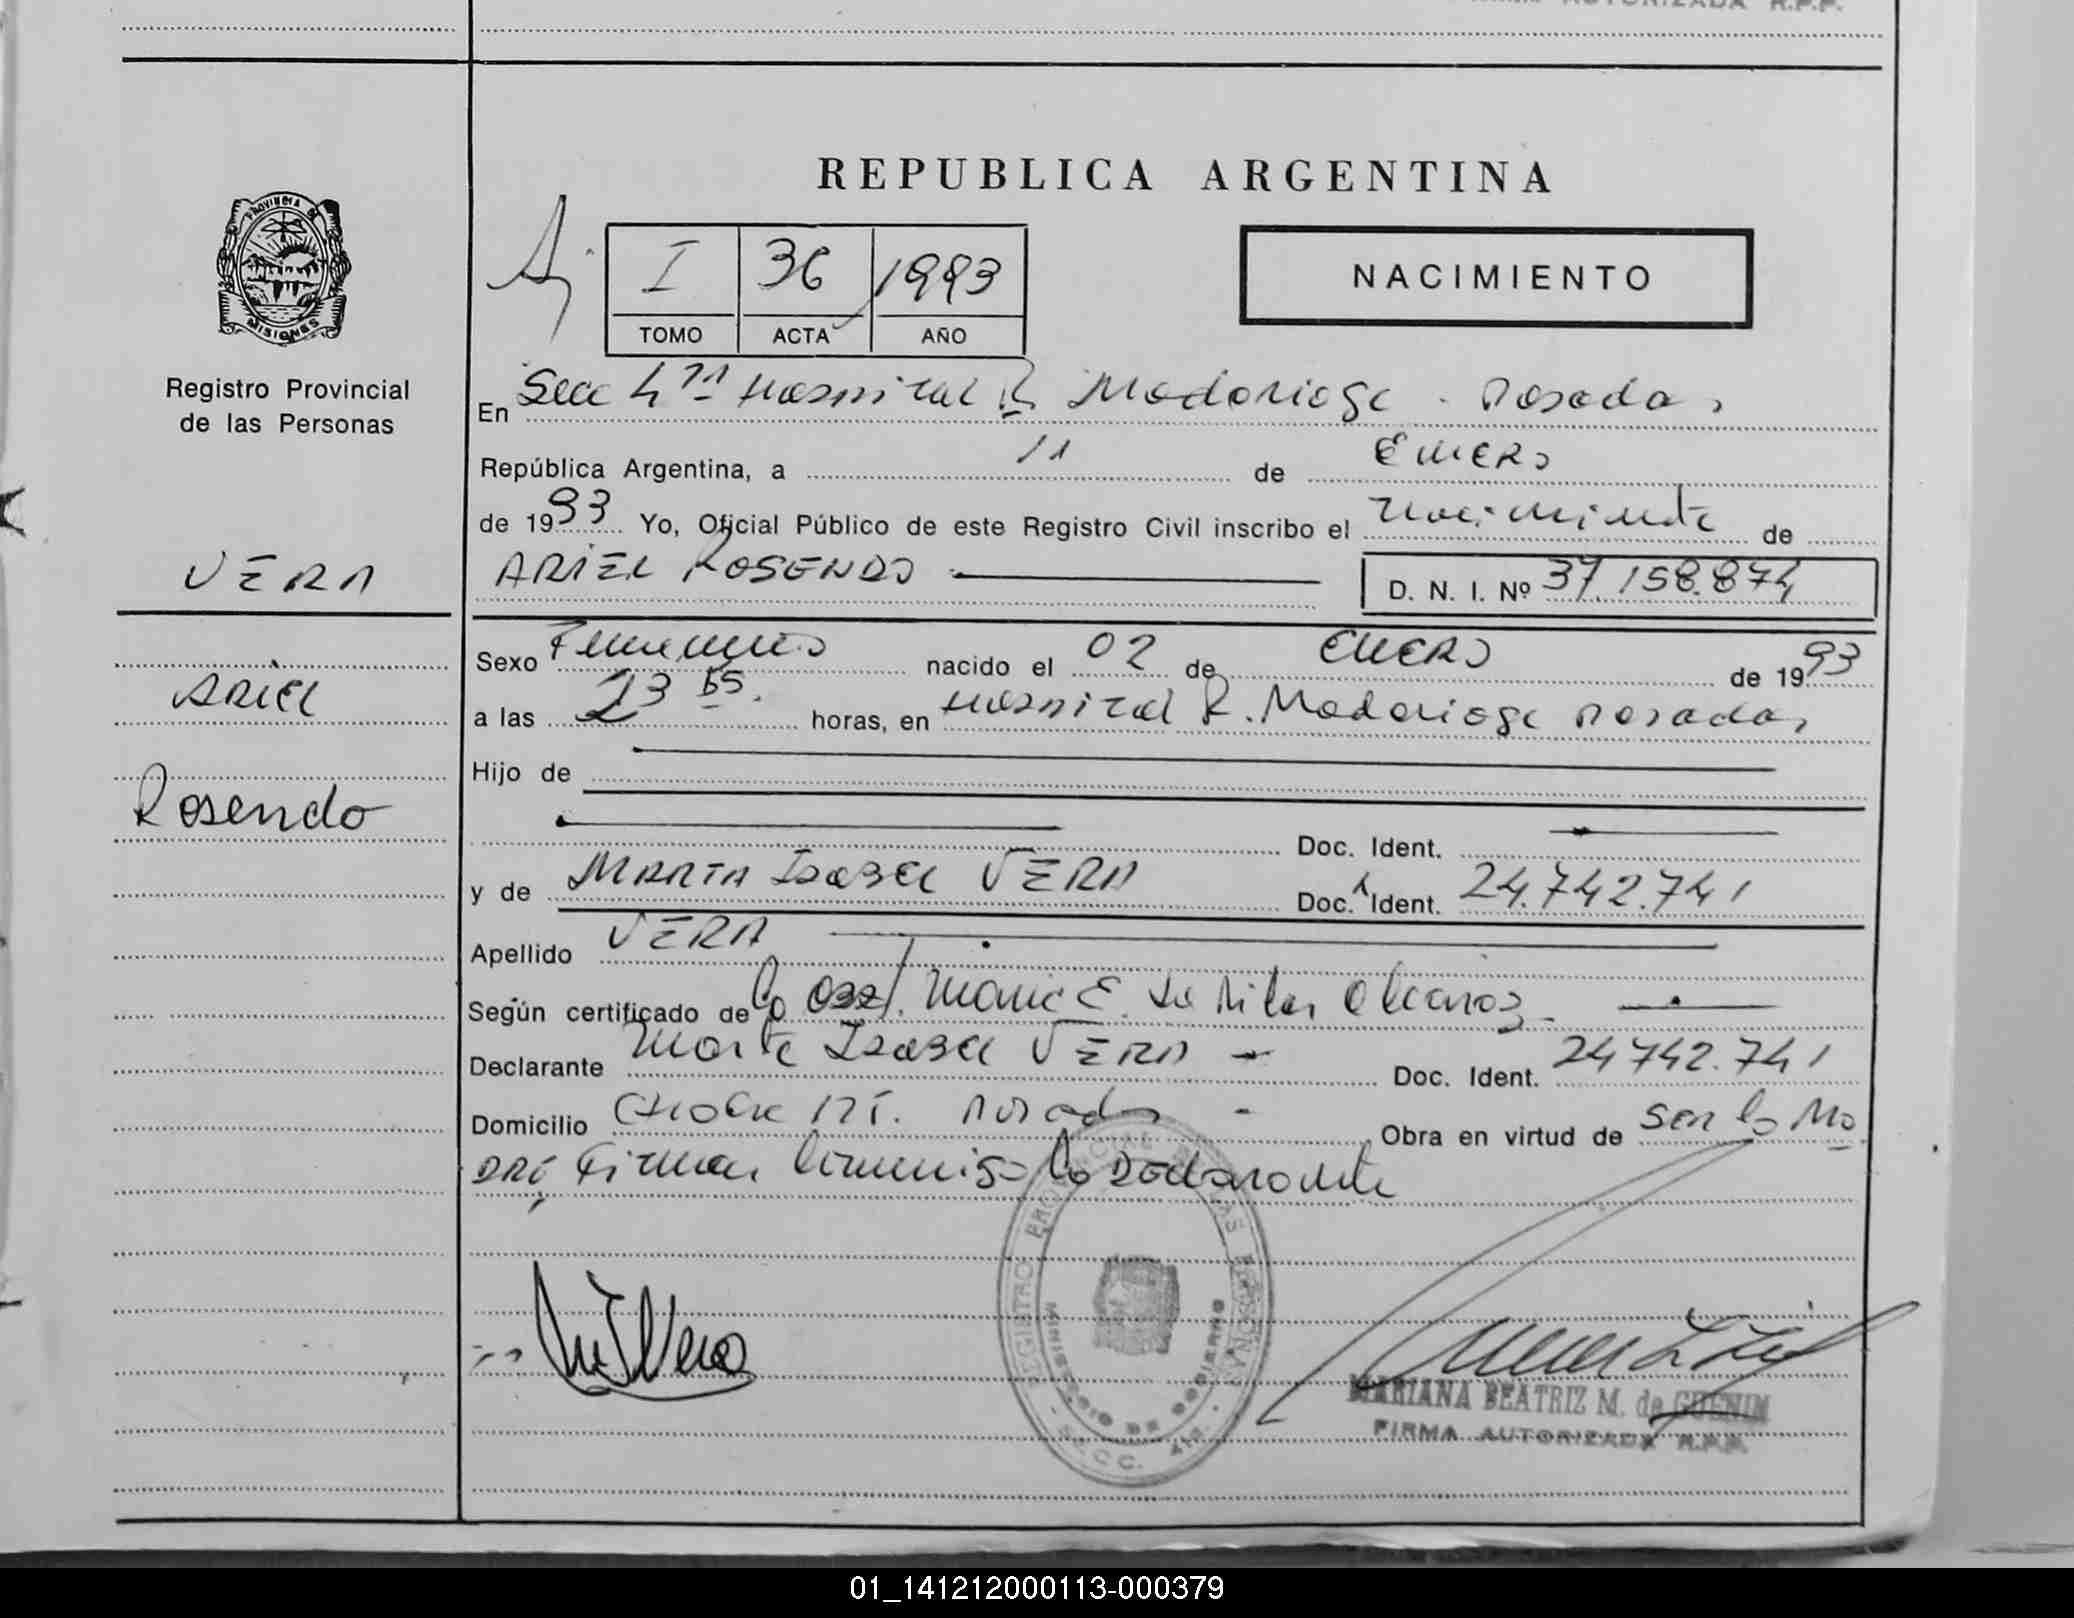 FIRMA AUTORIZADA R.P.P.
REPUBLICA ARGENTINA
PROVINCIA DE
MISIONES
Registro Provincial
de las Personas
I 36 1993
TOMO ACTA AÑO
NACIMIENTO
En Secc 4ta Hospital R. Madariaga - Posadas
República Argentina, a 11 de ENERO
de 1993 Yo, Oficial Público de este Registro Civil inscribo el nacimiento de
VERA
ARIEL ROSENDO D. N. I. Nº 37.158.874
Sexo Femenino nacido el 02 de ENERO de 1993
ARIEL
a las 23 55. horas, en Hospital R. Madariaga Posadas
Hijo de
Rosendo
Doc. Ident.
y de MARTA ISABEL VERA Doc. Ident. 24.742.741
Apellido VERA
Según certificado de la Obst. Maria E.
Declarante Marta ISABEL VERA - Doc. Ident. 24742.741
Domicilio Posadas - Obra en virtud de ser la Ma
DRE Firman conmigo la DEclarante
REGISTRO PROVINCIAL DE LAS PERSONAS
MINISTERIO DE GOBIERNO
SECC. 4ta.
MARIANA BEATRIZ M. de GUENIM
FIRMA AUTORIZADA R.P.P.
01_141212000113-000379